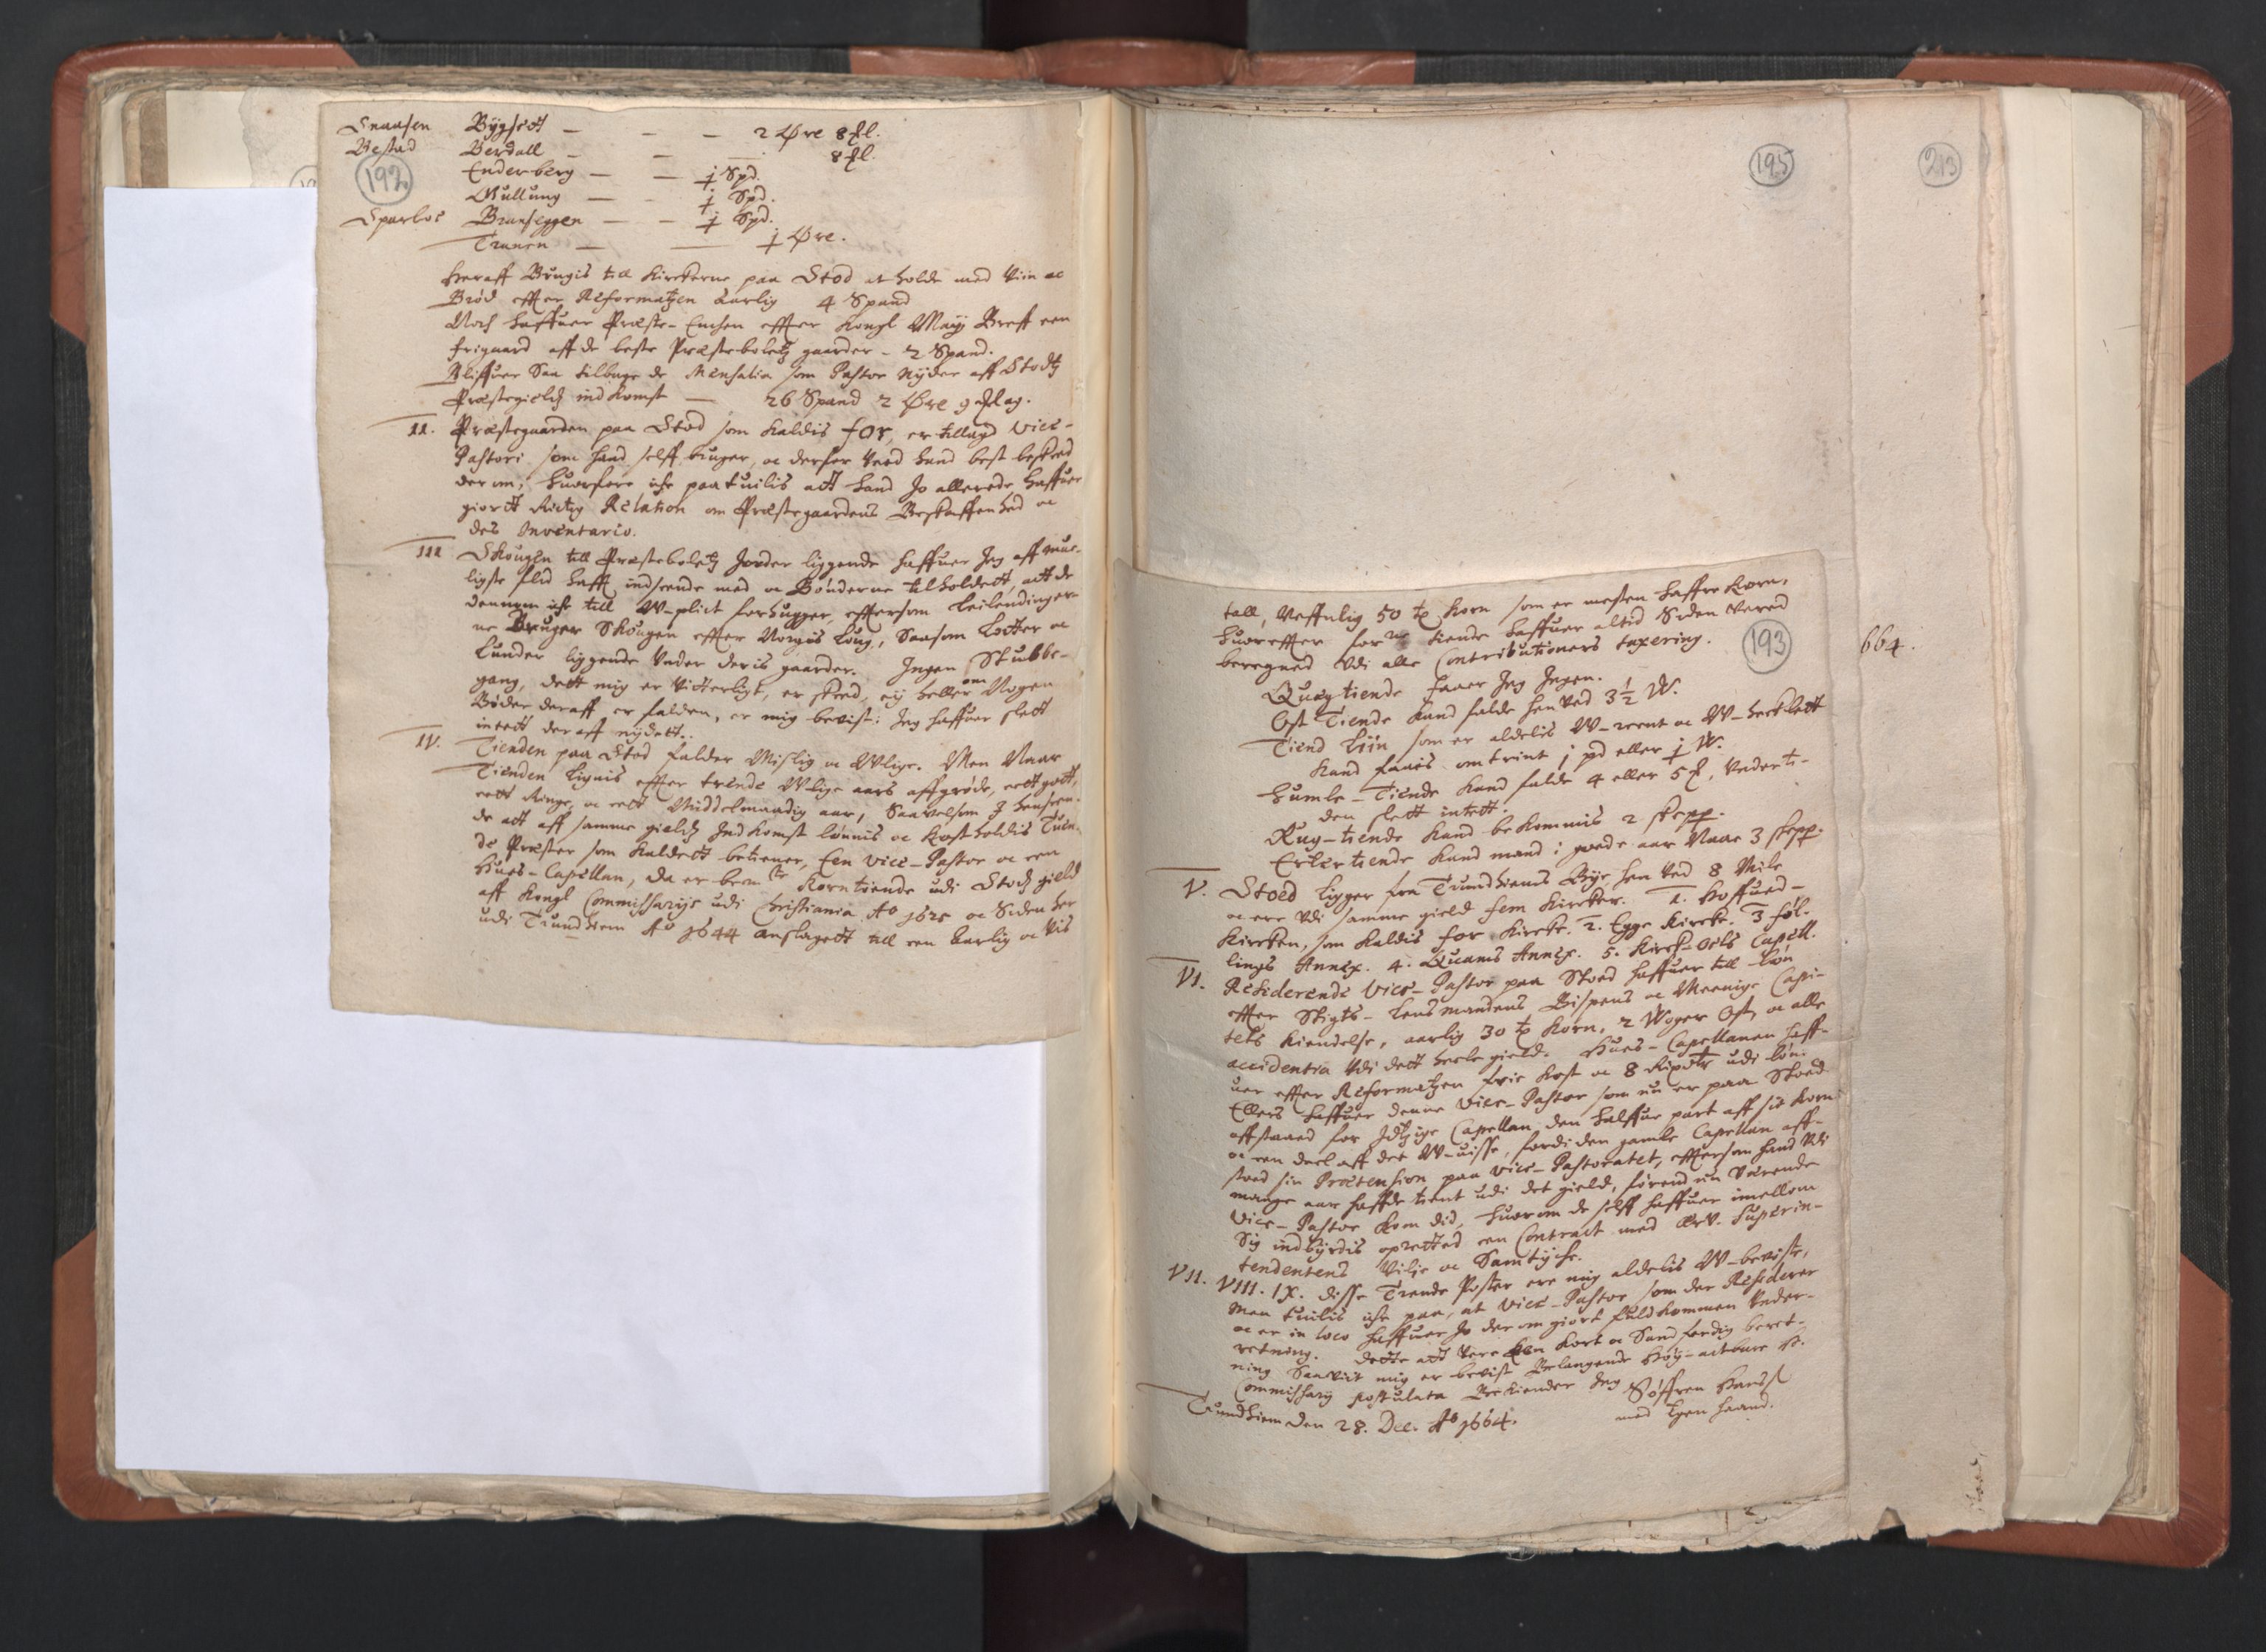 Snaasen Bygsett — — — 2 Øre 8 Fl.
Bestad Berdall — — — 8 Fl.
192
Enderberg — — j Spd.
Gullung — — j Spd.
Sparboe Brunseggen — — j Spd.
Tranen — — j Øre.
Heraff Brugis till Kirckerne paa Stod at holde med Viin oc
Brød effter Reformatzen aarlig 4 Spand
Noch haffuer Præste-Enchen effter Kongl Mayj Breff een
frigaard aff de beste Præstebolets gaarder - 2 Spand.
Bliffuer Saa tilbage de Mensalia som Pastor Nyder aff Stods
Præstegields indkomst — 26 Spand 2 Øre 9 Fl ag.
II. Præstegaarden paa Stod som kaldis For, er tillagd Vice-
Pastori som hand selff bruger, oc derfor veed hand best beskeed
der om, huorfore iche paatuilis att hand Jo allerede haffuer
giort Rictig Relation om Præstegaardens Beskaffenhed oc
des Inventario.
III Skougen till Præstebolets Jorder liggende haffuer Jeg aff mue-
ligste flid hafft indseende med oc Bønderne tilholdett, att de
dennem iche till W-plict forhugger, efftersom Leilendinger-
ne Bruger Skougen effter Norgis Loug, Saasom Lotter oc
Lunder liggende under deris gaarder. Ingen Stubbe-
gang, dett mig er Vitterligt, er skeed, eij heller om Nogen
Bøder deraff er falden, er mig bevist: Jeg haffuer slett
inteet der aff nydett.
IV. Tienden paa Stod falder Mislig oc Wlige. Men Naar
Tienden Lignis effter trende Wlige aars affgrøde, eett gott,
eett Ringe, oc eett Middelmaadig aar, Saavelsom J henseen-
de att aff samme gields Indkomst lønnis oc kostholdis Tuen-
de Præster som kaldett betiener, Een Vice-Pastor oc een
Hues-Capellan, da er bem.te Korntiende udi Stods gield
aff Kongl Commissarijs udi Christiania Ao 1625 oc Siden her
udi Trundhiem Ao 1644 anslagett till een aarlig oc Vis
195
213
tall, Neffnlig 50 tr Korn som er mesten Haffre Korn,
Huoreffter for.ne tiende haffuer altid Siden Vered
beregned Udi alle Contributioners taxering.
193
664.
Quegtiende faaer Jeg Ingen.
Ost Tiende kand falde hen ved 3½ W.
Tiend Liin som er aldelis W-reent oc W-hecklett
kand faais omtrint j pd eller j W.
Humle-Tiende kand falde 4 eller 5 , Underti-
den slett intett.
Rug-tiende kand bekommis 2 skepp.
Ertertiende kand mand i goede aar Naae 3 skepp.
V. Stoed Ligger fra Trundhiems Bye hen ved 8 Mile
oc ere Udi samme gield fem Kircker. 1. Hoffued-
Kircken, som kaldis For Kircke. 2. Egge Kircke. 3 Føl-
lings Annex. 4. Quams Annex. 5. Kirch-Oels Capell.
VI. Residerende Vice-Pastor paa Stoed haffuer till Løn
effter Stigts-Lensmandens Bispens oc Meenige Capi-
tels kiendelse, aarlig 30 tr Korn, 2 Woger Ost, oc alle
accidentia Udi dett heele gield. Hues-Capellanen haff-
uer effter Reformatzen frie kost oc 8 Rixdlr udi løn.
Ellers haffuer denne Vice-Pastor som nu er paa Stoed
affstaaed for Jdtzige Capellan den halffue part aff sit Korn
oc een deel aff det W-uisse, fordi den gamle Capellan aff-
stoed sin Prætension paa Vice-Pastoratet, efftersom hand Udi
mange aar haffde tient udi det gield, førend nu Værende
Vice-Pastor kom did, huorom de selff haffuer imellom
Sig indbyrdis opretted een Contract med Erv. Superin-
tendentens Vilje oc Samtyche.
VII. VIII. IX. disse Trende Poster ere mig aldelis W-beviste,
Men tuilis iche paa, at Vice-Pastor som der Residerer
oc er in loco haffuer Jo der om giort fuldkommen Under-
retning. Dette att Vere Een Kort oc Sandferdig beret-
ning Saavit mig er bevist Belangende Høy-actbare H.
Commissarij postulata Bekiender Jeg Søffren Hanss
Trundhiem den 28. Dec. Ao 1664. med Egen Haand.